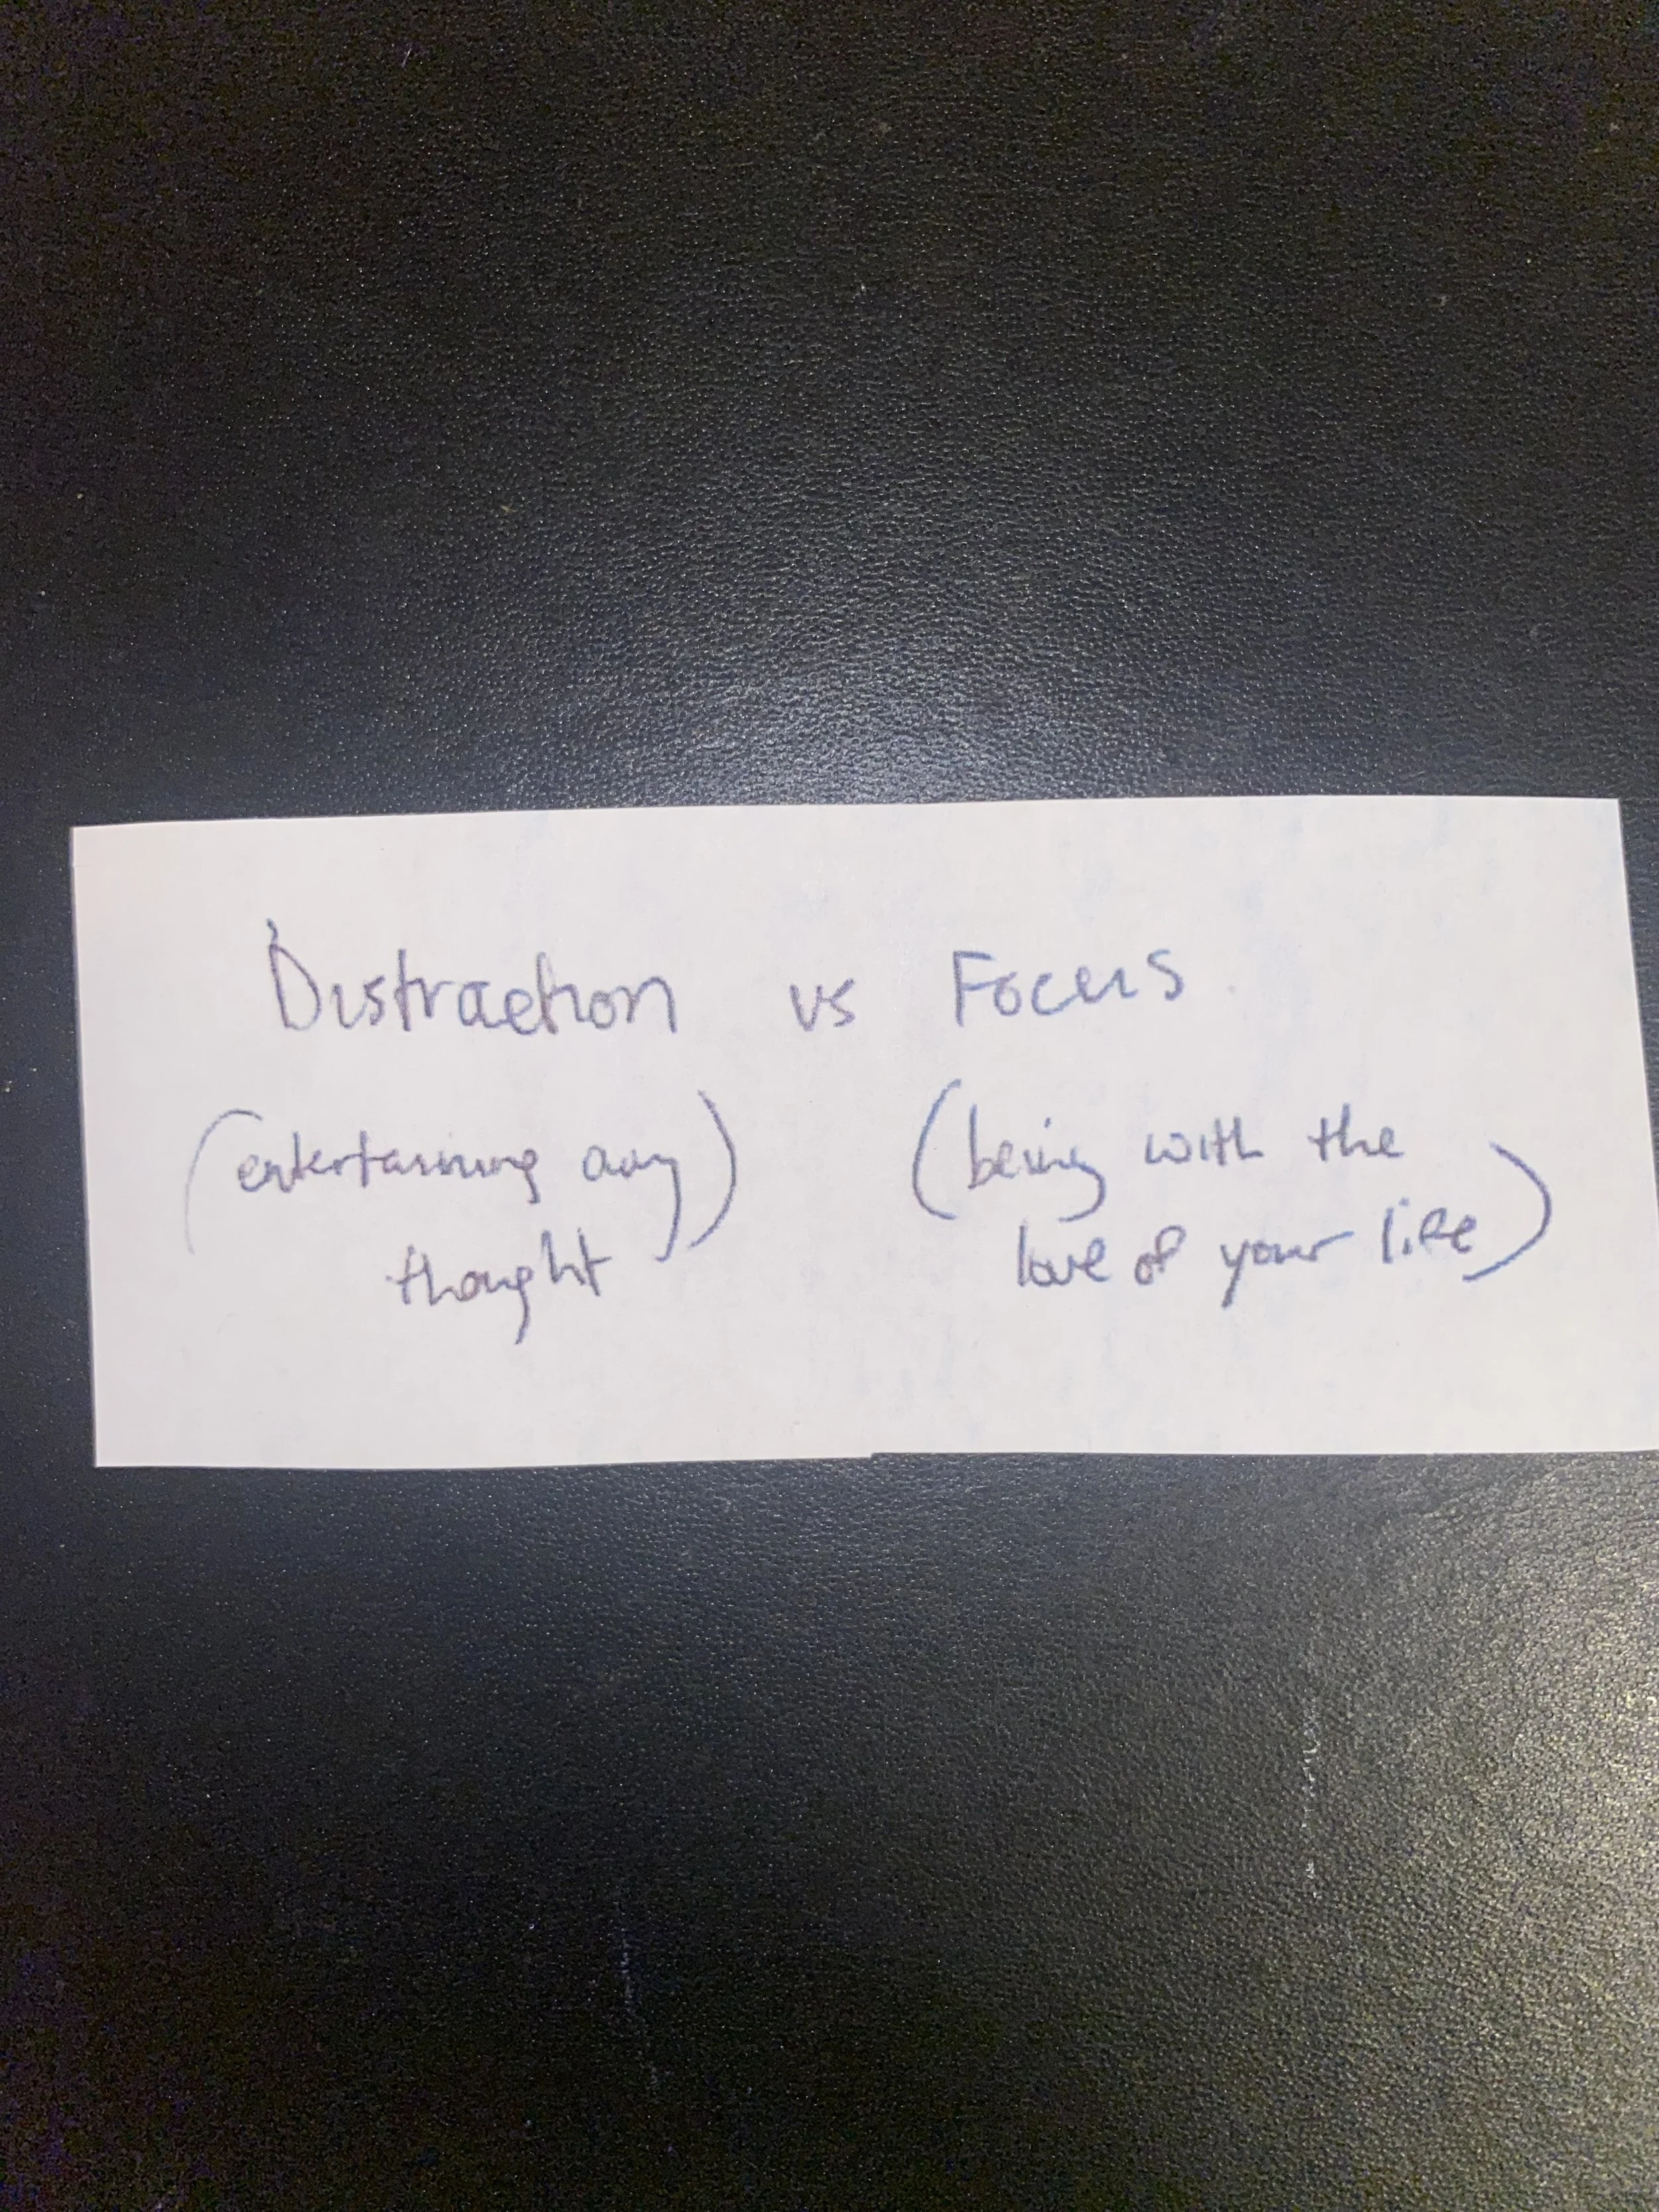 Distraction vs Focus
(entertaining any thought) (being with the
love of your life)